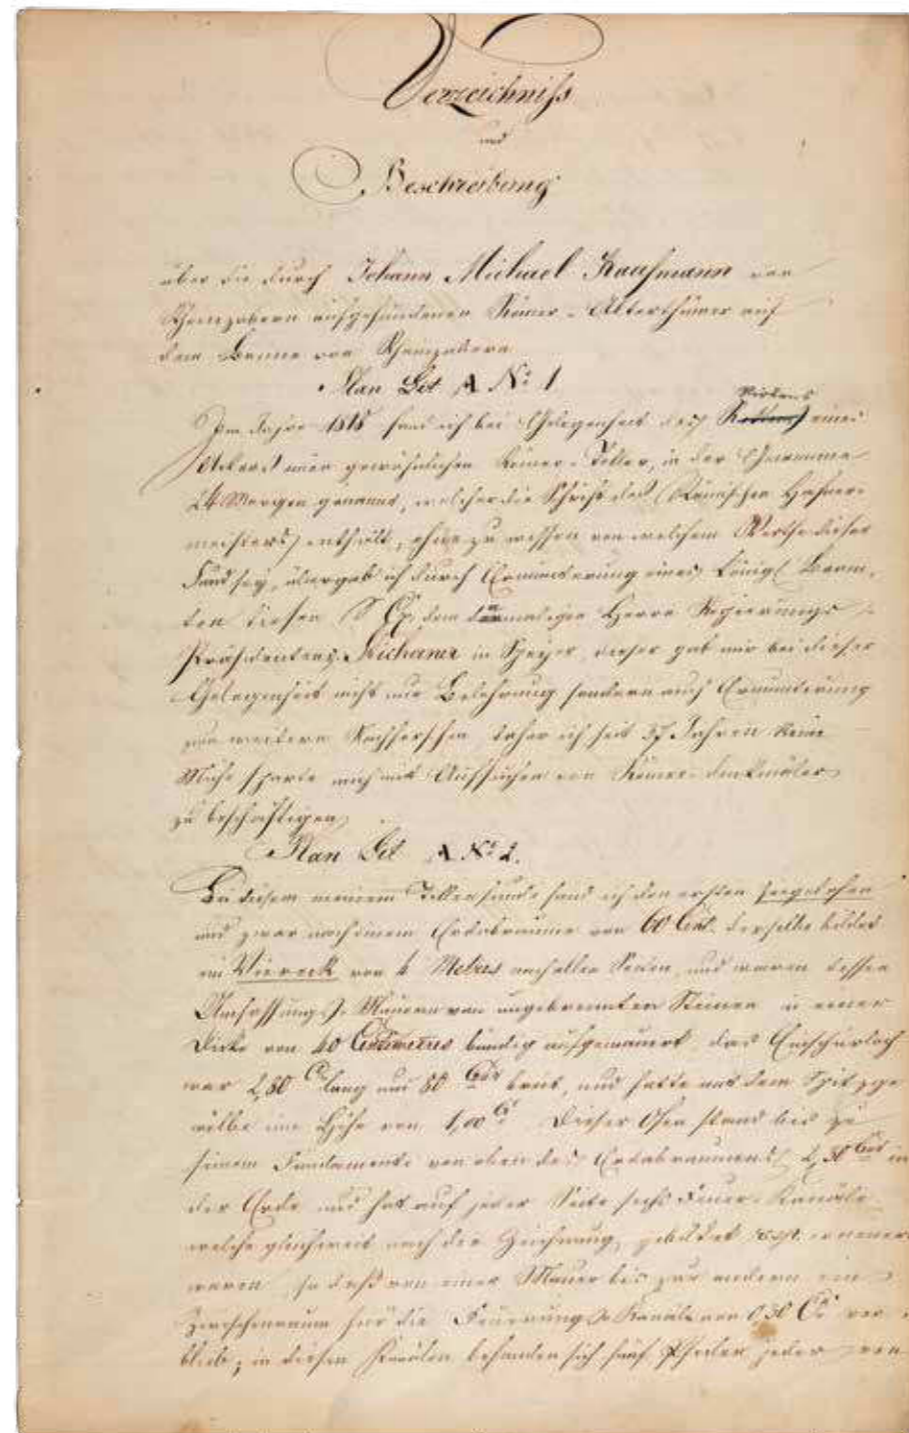 Verzeichniss
und
Beschreibung
über die durch Johann Michael Kaufmann von
Rheinzabern aufgefundenen Römer-Alterthümer auf
dem Banne von Rheinzabern
Plan Lit A No 1
Im Jahre 1818 fand ich bei Gelegenheit des eines
Ackers einen gewöhnlichen Römer-Teller, in der Gewanne
24 Morgen genannt, welcher die Schrift des (Römischen Hafner-
meisters) enthält, ohne zu wissen von welchem Werthe dieser
Fund sey, übergab ich durch Ermunterung eines Königl Beam-
ten diesen dem damaligen Herrn Regierungs-
Präsidenten in Speyer, dieser gab mir bei dieser
Gelegenheit nicht nur Belehrung sondern auch Ermunterung
zum weitern Nachforschen, daher ich seit 37 Jahren keine
Mühe sparte mich mit Aufsuchen von Römer-denkmäler
zu beschäftigen,
Plan Lit A No 2.
Bei diesem meinem Tellerfunde fand ich den ersten Ziegelofen
und zwar nach einem Erdabraume von 60 Cent. derselbe bildet
ein Viereck von 4 Metres nach allen Seiten, und waren dessen
Umfassungs-Mauern von ungebrannten Steinen in einer
Dicke von 40 Centimetres bündig aufgemauert, das Einschürloch
war 2,80 lang und 80 breit, und hatte mit dem Spitzge-
wölbe eine Höhe von 1,00 Dieser Ofen stand bis zu
seinem Fundamente von oben des Erdabraumes 2,30 in
der Erde und hat auf jeder Seite sechs Feuer-Kanäle
welche gleichweit nach der Zeichnung gebildet resp.
waren so daß von einer Mauer bis zur andern ein
Zwischenraum für die Feuerungs-Kanäle von 0 30 ver-
blieb; in diesen Kanälen befanden sich fünf Pfeiler jeder von